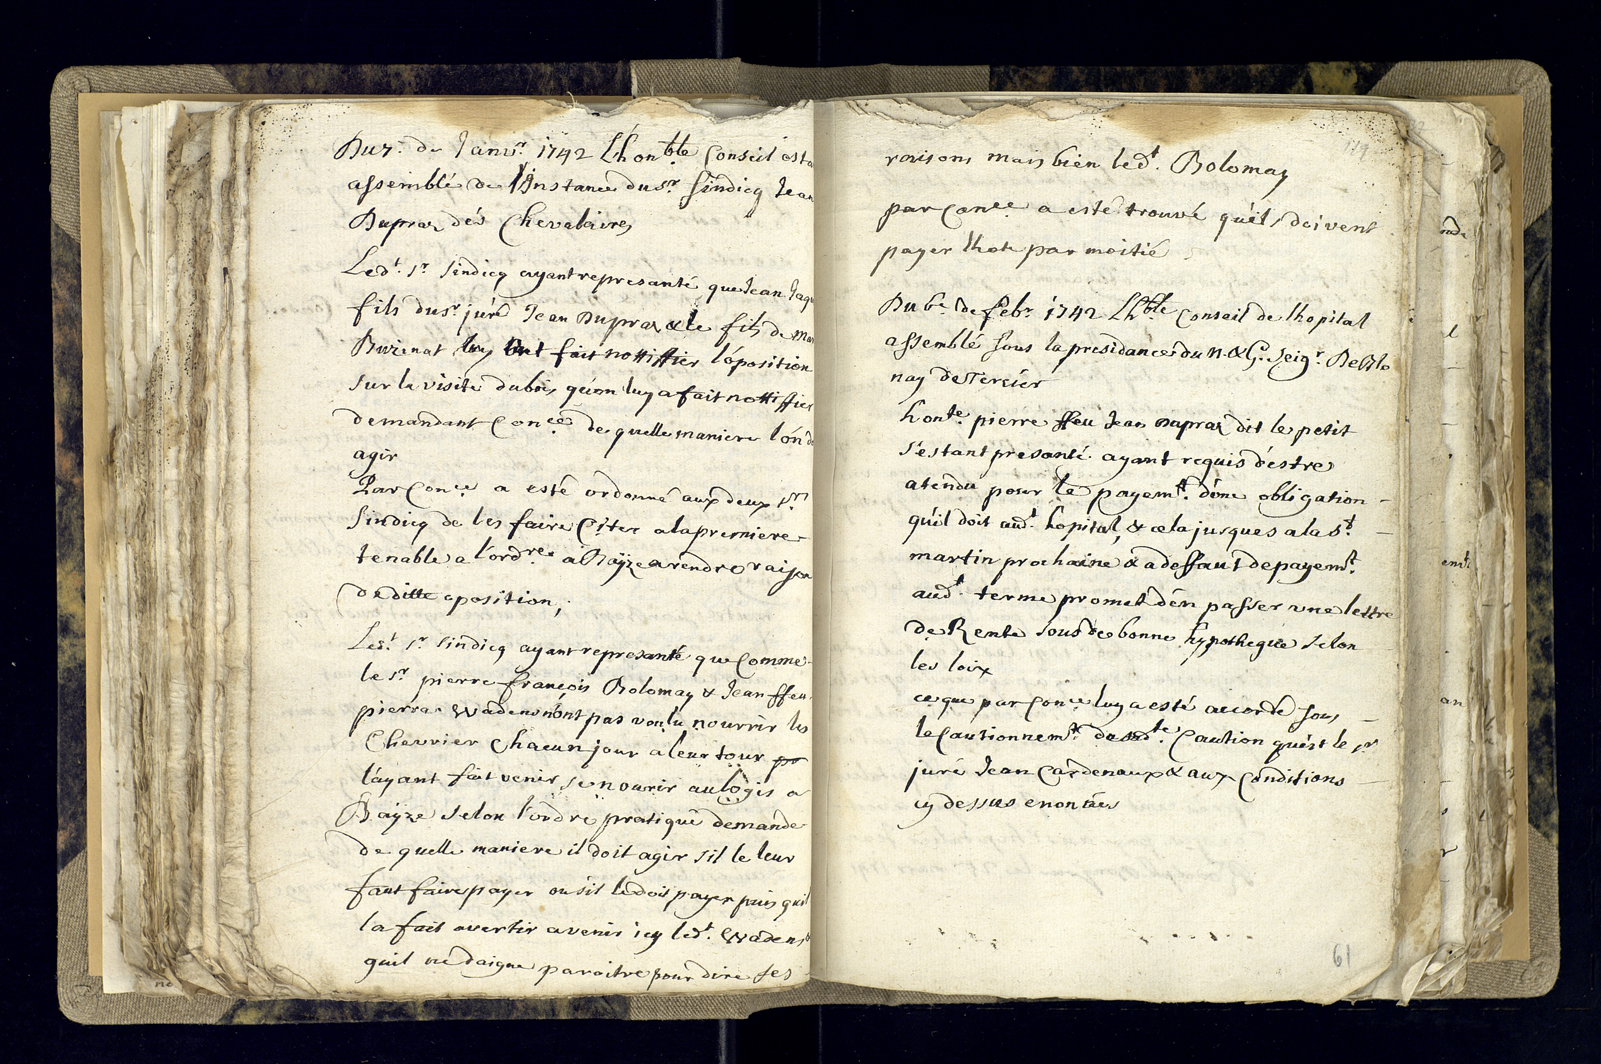 Du 7.e de Janvr. 1742 L'honble Conseil esta
assemblé de l'Instance du sr. sindicq Jean
Dupraz dés Chevalaires
Ledt. sr. sindicq ayant represanté que Jean Jaq
fils du sr. juré Jean Dupraz & le fils de
Burenat luy ont fait nottiffier l'óposition
sur la visite du bois qu'on luy a fait nottiffier
demandant Conce de quelle maniere l'on
agir
Par Conce a esté ordonné aux deux srs
sindicq de les faire Citer a la premiere
tenable a l'ordre a Baÿze a rendre raison
de ditte oposition,
Ledt. sr. sindicq ayant represanté que Comme
le sr. pierre françois Bolomay & Jean ffeu
pierre Wadens n'ont pas voulu nourrir les
Chevrier Chacun jour a leur tour
l'ayant fait venir se nourir au logis a
Baÿze selon l'ordre pratiqué demande
de quelle maniere il doit agir s'il le leur
faut faire payer ou s'il le doit payer puis qu'il
la fait avertir a venir icy ledt. Wadens
quil ne daigne paroitre pour dire ses
raisons mais bien ledt. Bolomay
par Conce a esté trouvé qu'ils doivent
payer lhote par moitié
Du 6e de febr. 1742 Lhble Conseil de lhopital
assemblé sous la presidance du N. & G. Seigr. De Blo
nay de Tercier
honte. pierre ffeu Jean Dupraz dit le petit
s'estant presanté ayant requis d'estre
atendu pour le payemt. d'une obligation
qu'il doit audt. hopital, & cela jusques a la St.
martin prochaine & a deffaut de payemt.
audt. terme promet d'en passer une lettre
de Rente sous de bonne hypotheque selon
les loix
ce que par Conce luy a esté accordé sous
le Cautionnemt. de Caution qu'est le sr
juré Jean Cardenaux & aux Conditions
cy dessus enoncées
61